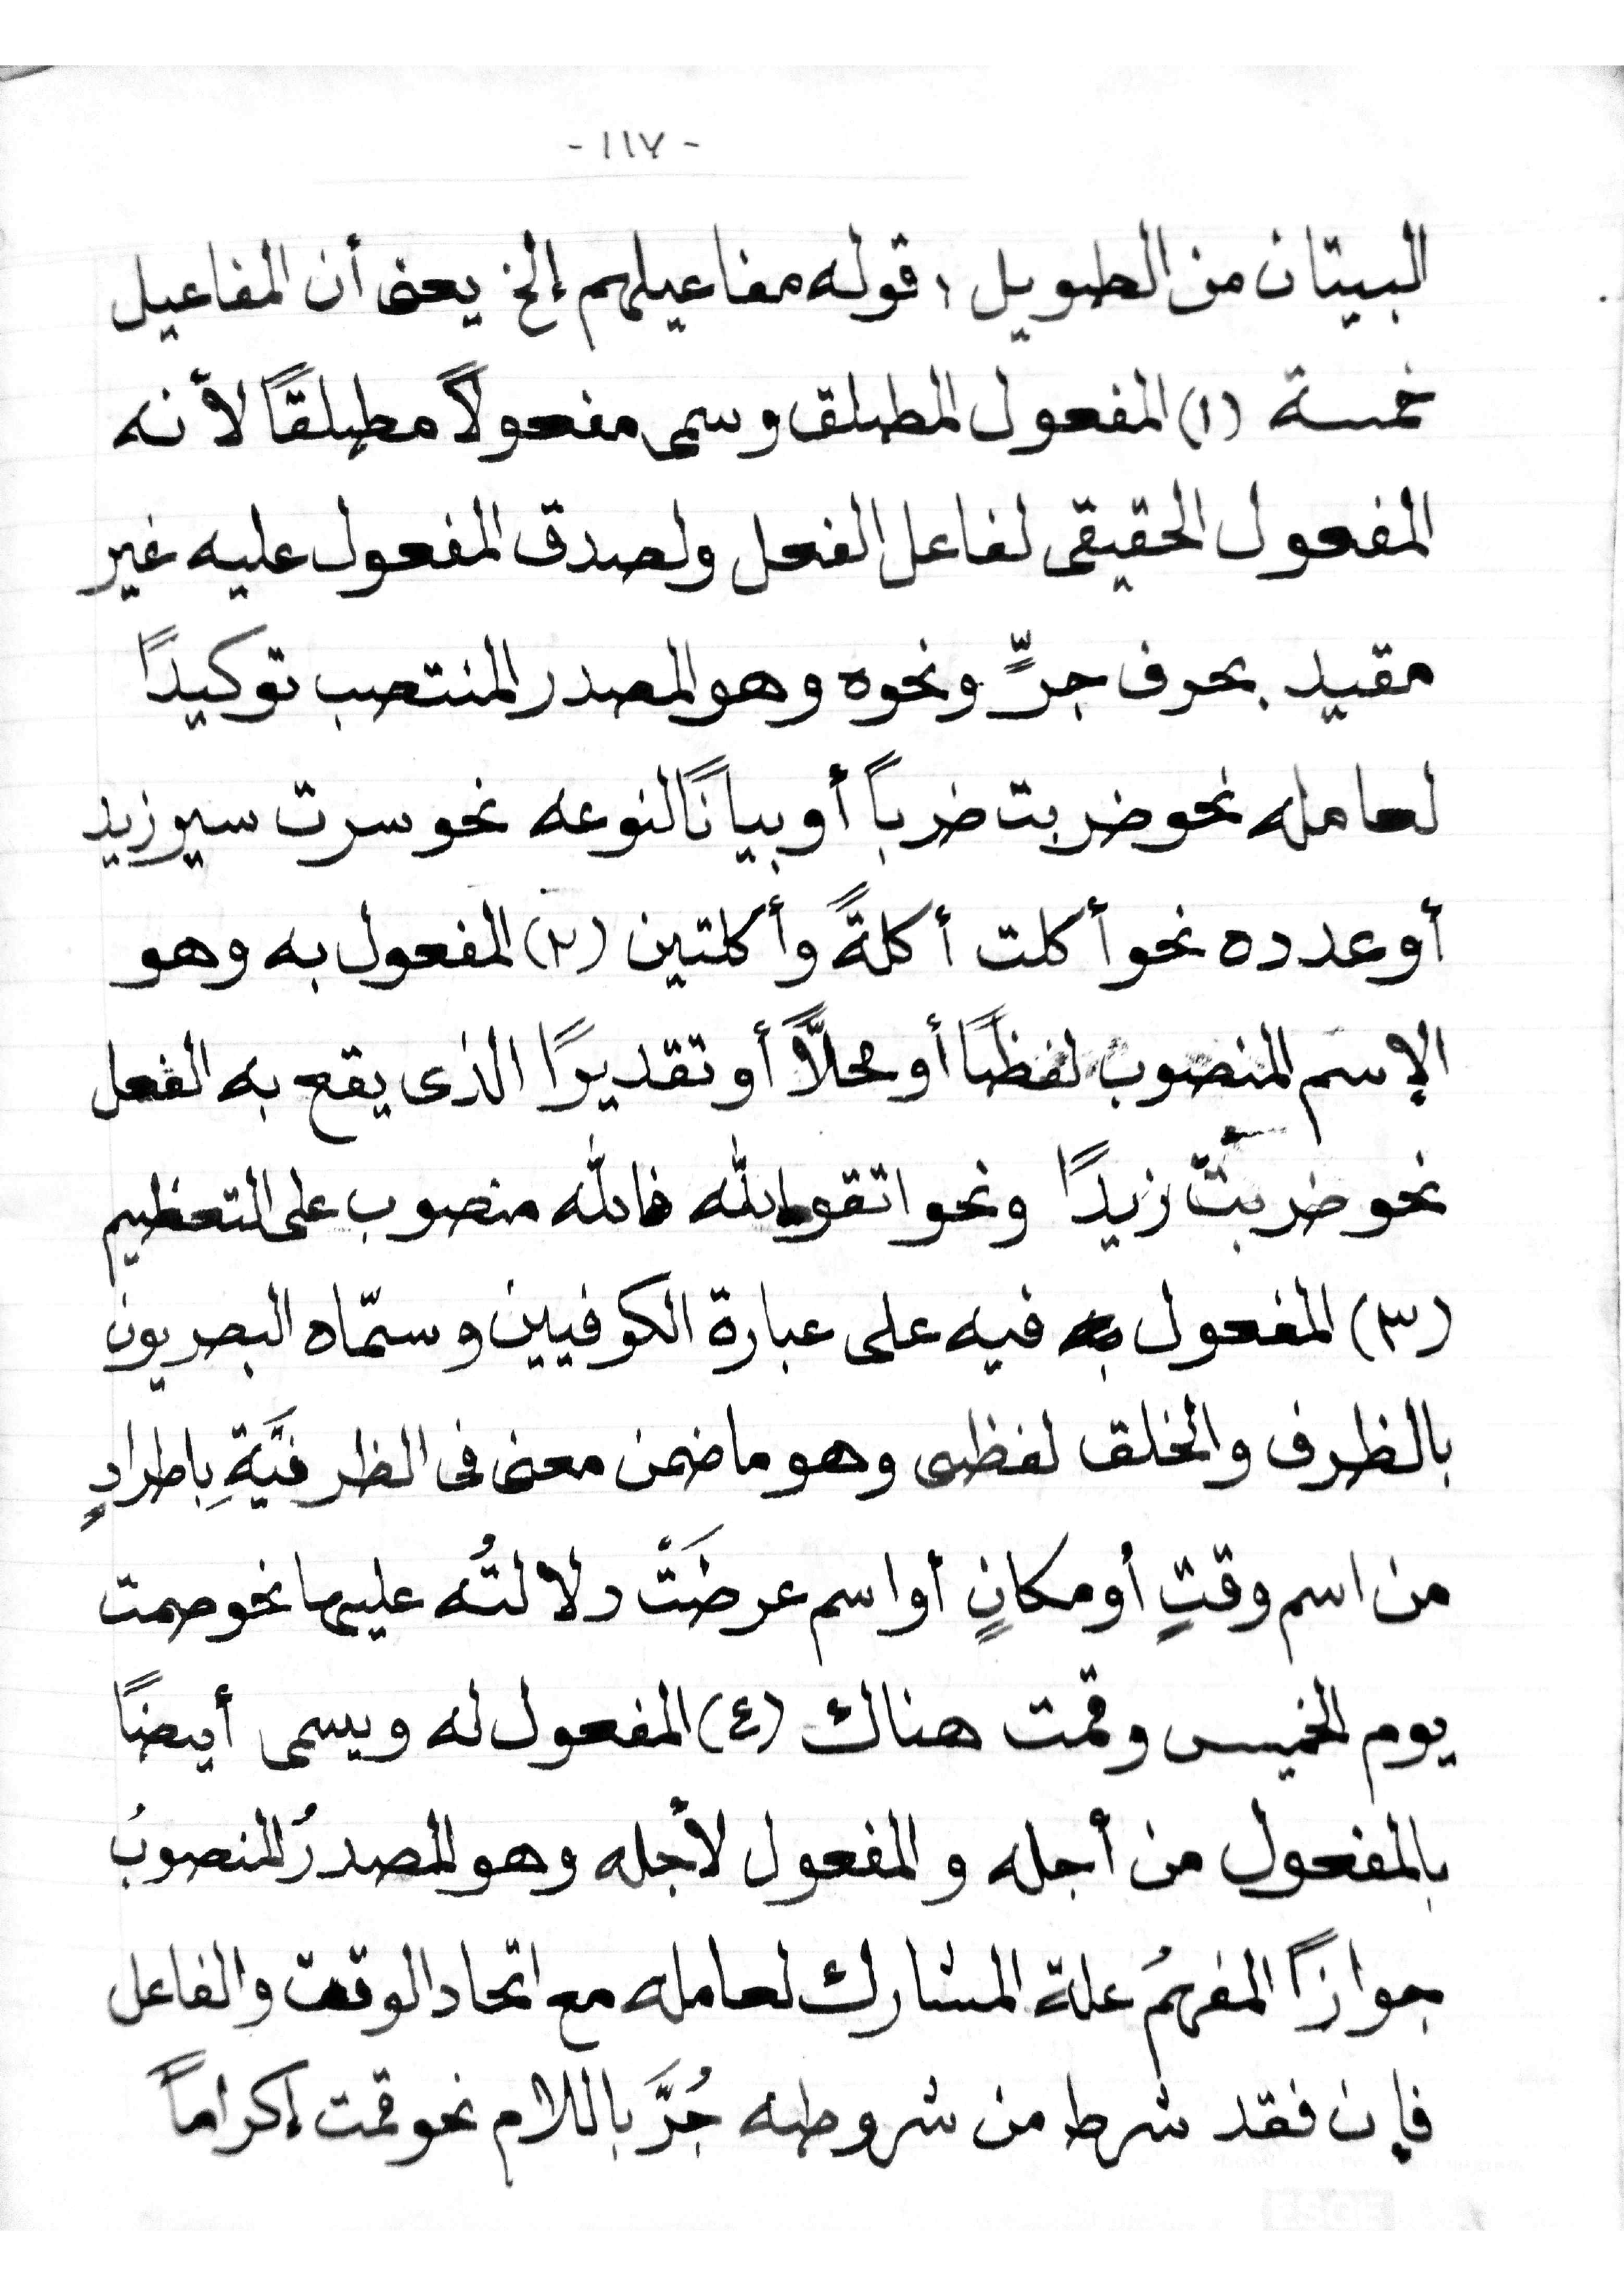 - ١١٧ -
البيتان من الطويل ، قوله مفاعيلهم إلخ يعنى أن المفاعيل
خمسة (١) المفعول المطلق وسمى مفعولاً مطلقًا لأنه
المفعول الحقيقى لفاعل الفعل ولصدق المفعول عليه غير
مقيد بحرف جرٍّ ونحوه وهو المصدر المنتصب توكيدًا
لعامله نحو ضربت ضرباً أو بيانًا لنوعه نحو سرت سير زيد
أو عدده نحو أكلت أكلةً وأكلتين (٢) المفعول به وهو
الإسم المنصوب لفظًا أو محلاًّ أو تقديرًا الذى يقع به الفعل
نحو ضربتُ زيدًا ونحو اتقوا الله فالله منصوب على التعظيم
(٣) المفعول فيه على عبارة الكوفيين وسمّاه البصريون
بالظرف والخلق لفظى وهو ما ضمن معنى فى الظرفيَّةِ بِاطرادٍ
من اسم وقتٍ أو مكانٍ أو اسم عرضَتْ دلالتُه عليها نحو صمت
يوم الخميس وقمت هناك (٤) المفعول له ويسمى أيضًا
بالمفعول من أجله والمفعول لأجله وهو المصدرُ المنصوبُ
جوازاً المفهمُ علة المشارك لعامله مع اتحاد الوقت والفاعل
فإن فقد شرط من شروطه جُرَّ باللام نحو قمت إكراماً